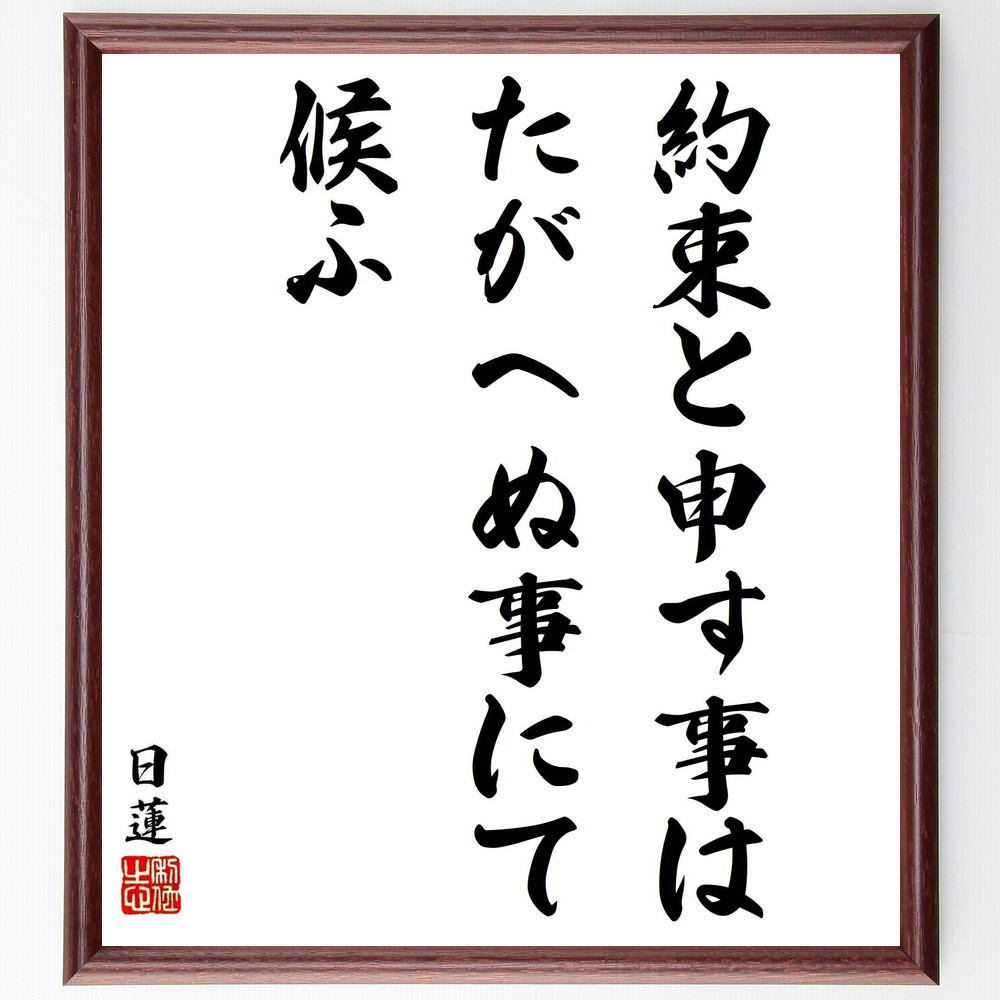 約束と申す事は
たがへぬ事にて
候ふ
日蓮